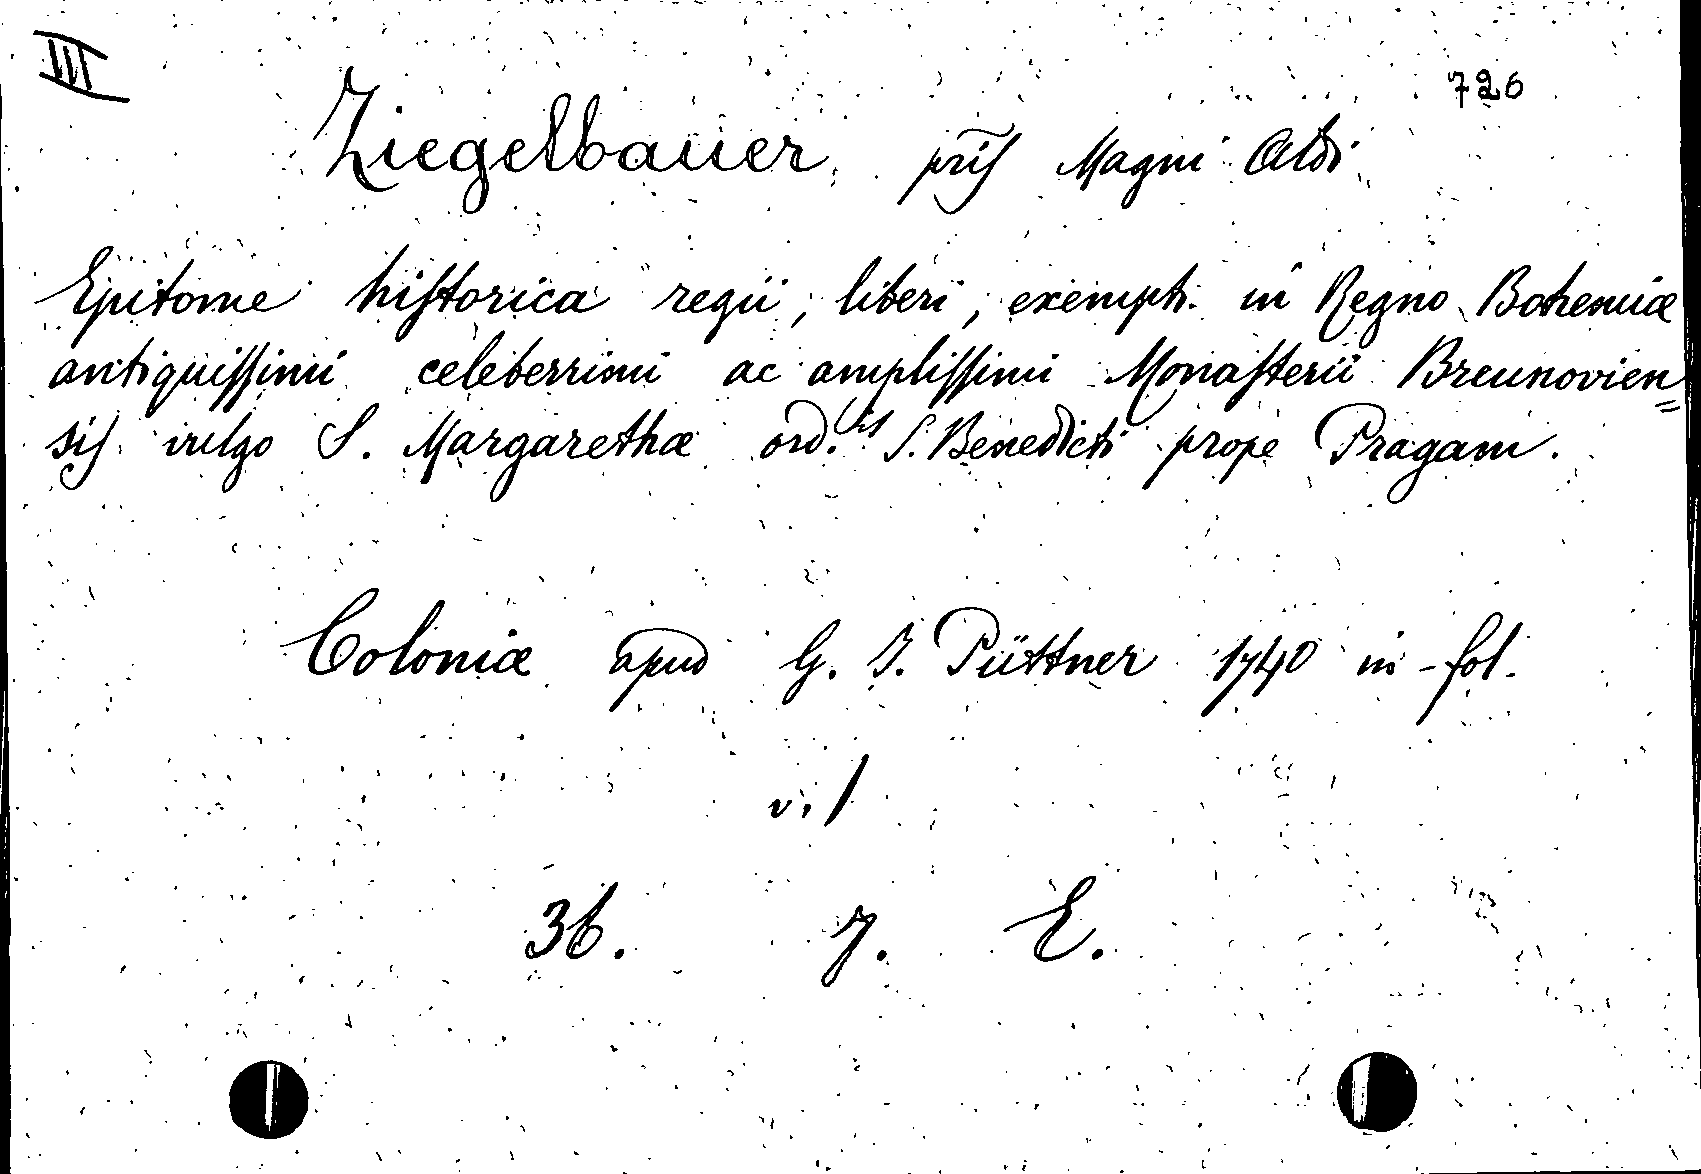 III
726
Ziegelbauer, pris Magni Aldi
Epitome historica regii, liberi, exempti in Regno Bohemiæ
antiquissimi celeberrimi ac amplissimi Monasterii Breunovien=
sis vulgo S. Margarethæ ord.is S. Benedicti prope Pragam.
Coloniæ apud G. J. Püttner 1740 in-fol.
v. 1
36. 7. E.